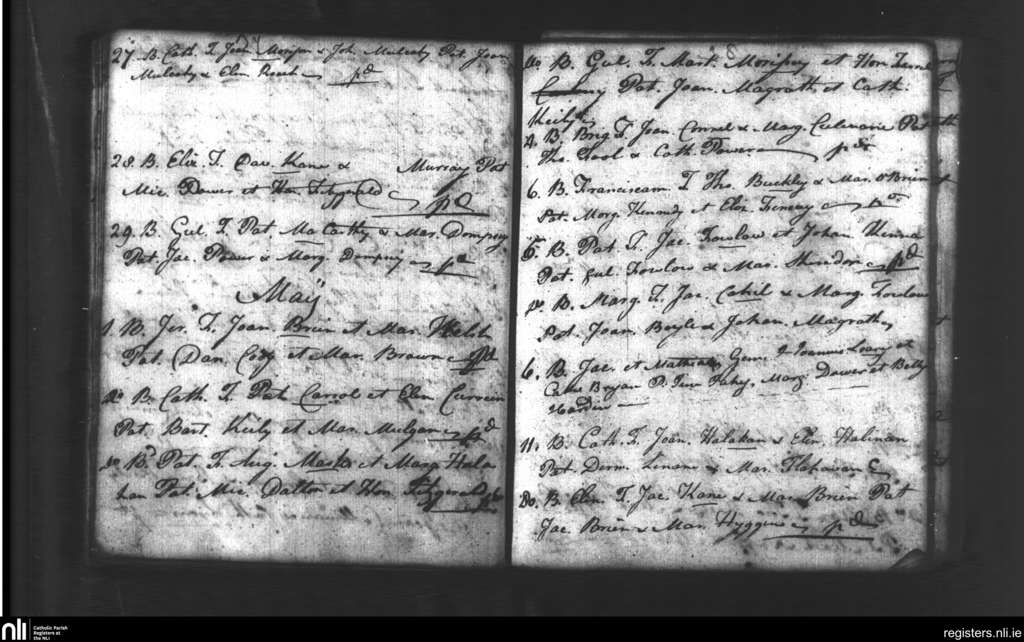 27. B. Cath. F. Joan Morison & Joh. Mulcahy Pat. Joan
Mulcahy & Elen pd
28. B. Eliz. F. Dav. Kane & Murray Pat
Mic. Power et Hon. Fitzgerald pd
29. B. Gul. F. Pat. McCarthy & Mar. Dempsy
Pat. Jac. Power & Marg. Dempsy pd
May
1. B. Jer. F. Joan. Brien et Mar. Welsh
Pat. Dan. Cody et Mar. Brown pd
Do B. Cath. F. Pat. Carrol et Elen Curreen
Pat. Bart. Kiely et Mar. Mulgan pd
Do B. Pat. F. Aug. Mask et Marg. Hala
han Pat. Mic. Dalton et Hon. Fitzgerald
Do B. Gul. F. Mart. Morisey et Hon.
Pat. Joan. Magrath et Cath.
Keily
4. B. Brig. F. Joan. Connel & Marg. Pat
Tho. & Cath. Power pd
6. B. Franciscam F. Tho. Buckley & Mar. O'Brien
Pat. Morg. Kennedy et Eliz.
6. B. Pat. F. Jac. Fowlow et Johan
Pat. Gul. Fowlow & Mar. pd
Do B. Marg. F. Jac. Cahil & Marg. Fowlow
Pat. Joan. Boyle & Johan. Magrath
6. B. Jac. et Mathias Gem. F. Joannis et
Cath. Bryan P. Fahy, Marg. Power et Betty
11. B. Cath. F. Joan. Halahan & Elen. Halinan
Pat. Derm. & Mar. Flahavan
Do. B. Elen. F. Jac. Kane & Mar. Brien Pat
Jac. Brien & Mar. Hyggins pd
nli
Catholic Parish
Registers at
the NLI
registers.nli.ie